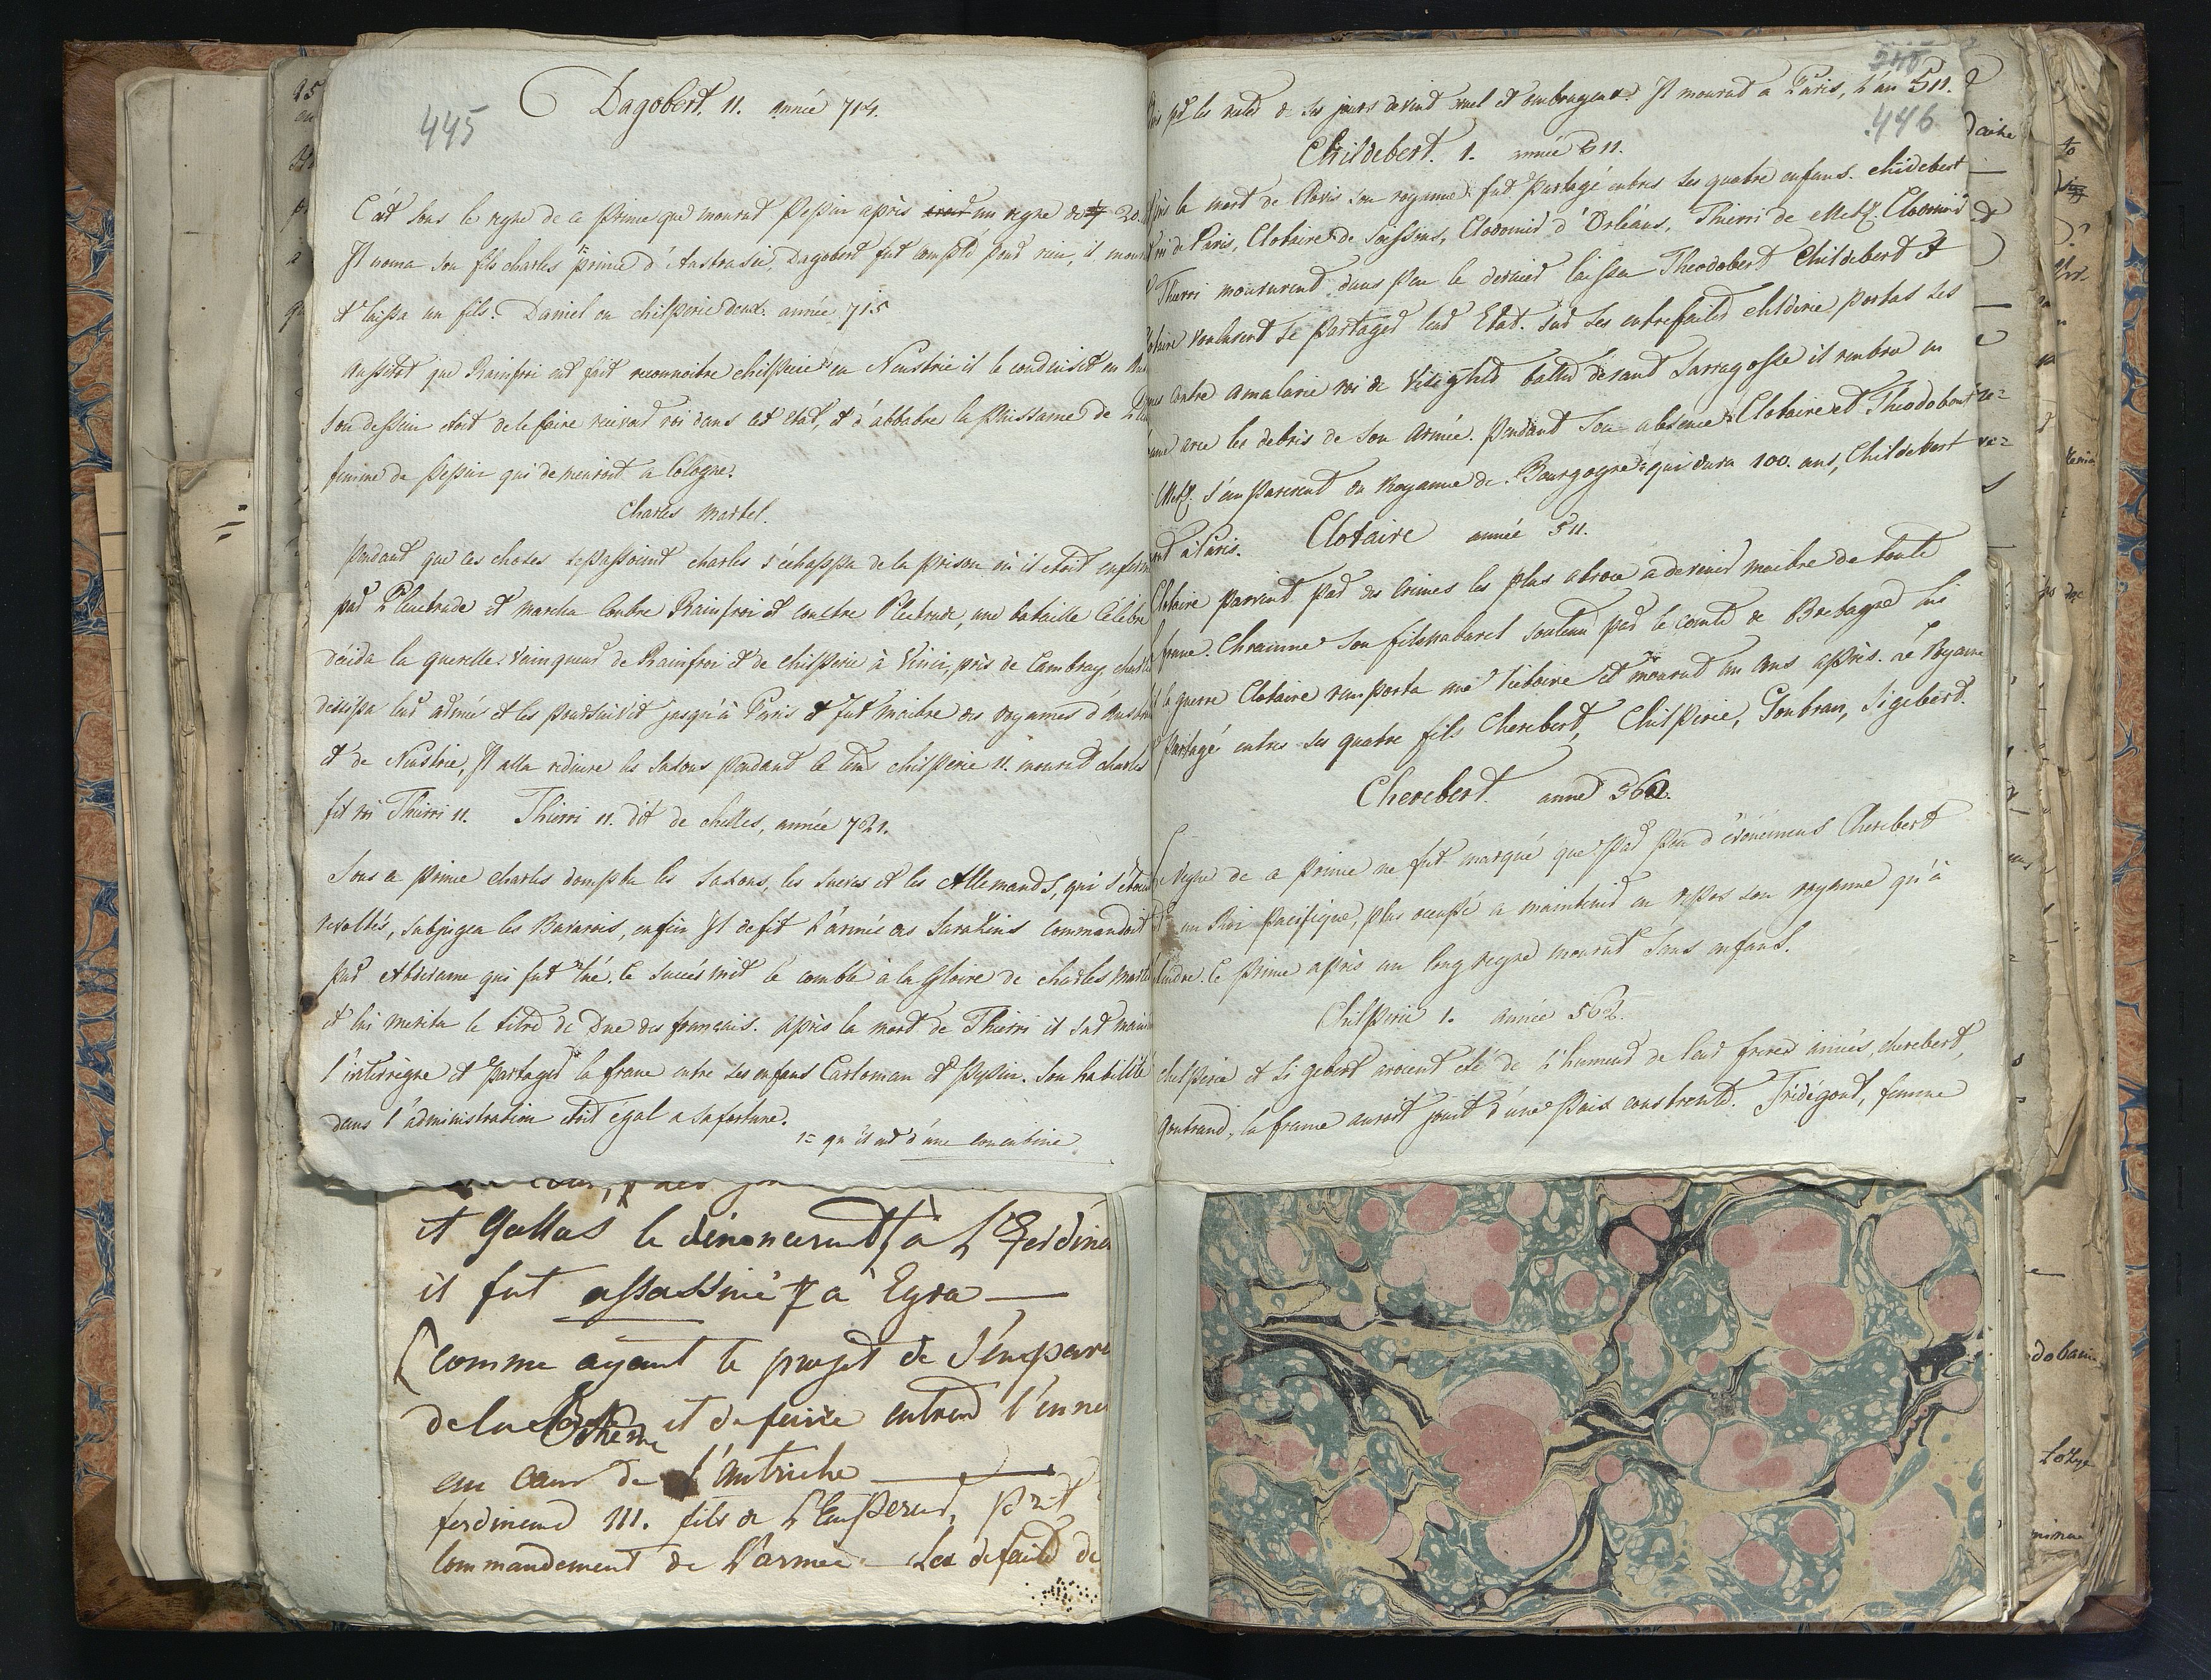 445
Dagobert. 11. année 714.
C'est sous le regne de ce prince que mourut Pepin après un regne de 20.
Il noma son fils charles prince d'Austrasie, Dagobert fut compté pour rien, il mour
et laissa un fils. Daniel ou chilperic deux. année 715
Aussitot que Rainfroi eut fait reconnoitre chilperic en Neustrie il le conduisit en Au
son dessein etoit de le faire recevoir roi dans cet etat, et d'abbatre la puissance de
femme de Pepin qui demeuroit a Cologne.
Charles Martel.
Pendant que ces choses se passoient charles s'échappa de la prison où il etoit enferm
par Plectrude et marcha contre Rainfroi et contre Plectrude, une bataille célèbre
décida la querelle. Vainqueur de Rainfroi et de chilperic à Vinci, près de Cambray, charl
dissipa leur armée et les poursuivit jusqu'à Paris et fut maitre des royaumes d'Austra
et de Neustrie, Il alla reduire les saxons pendant ce tems chilperic 11. mourut charles
fit roi Thierri 11. Thierri 11. dit de chelles, année 721.
Sous ce prince charles dompta les saxons, les sueves et les Allemands, qui s'etoient
revoltés, subjugea les Bavarois, enfin Il defit l'armée des Sarazins commandoit
par Abderame qui fut tué. Ce succès mit le comble à la gloire de charles martel
et lui merita le titre de Duc des français. après la mort de Thierri il sut main
l'interrègne et partager la france entre ses enfans Carloman et Pepin. Son habilité
dans l'administration etoit égal a sa fortune.
1= qu'il eut d'une concubine
et Gallas le dénoncerent à l' Ferdine
il fut assassiné à Egra —
(comme ayant le projet de s'empare
de la Boheme et de faire entrer l'enne
au cœur de l'Autriche —
ferdinand 111. fils de l'Empereur, prit
commandement de l'armée. — Les defaite de
446
les restes de ses jours devint cruel et ombrageux. Il mourut a Paris, l'an 511.
Childebert. 1. année 511.
la mort de Clovis son royaume fut partagé entres ses quatre enfans. childebert
roi de Paris, Clotaire de Soissons, Clodomir d'Orléans, Thierri de Metz. Clodomir
Thierri moururent dans peu le dernier laissa Theodobert Childebert et
Clotaire voulurent se partager leur Etat. Sur ses entrefaites childeric portas ses
contre Amalaric roi de Visights battu devant Sarragosse il rentra en
avec les debris de son armée. Pendant son absence Clotaire et Theodobert
Metz. s'emparerent du Royaume de Bourgogne qui dura 100. ans, Childebert
à Paris. Clotaire année 511.
Clotaire parvint par des crimes les plus atroce a devenir maitre de toute
france. Chramne son fils soutenu par le comte de Bretagne lui
la guerre Clotaire remporta une victoire et mourut un ans après. Le Royaume
partagé entres ses quatre fils Cherebert, Chilperic, Gontran, Sigebert.
Cherebert. anné 562.
Regne de ce Prince ne fut marqué que par peu d'évènemens Cherebert
un Roi pacifique, plus occupé a maintenir en repos son royaume qu'à
Ce prince après un long regne mourut sans enfans.
Chilperic 1. année 562.
chilperic et Sigebert avoient été de l'humeur de leur freres ainés, cherebert,
Gontrand, la france auroit jouit d'une paix constante. Frédégond, femme